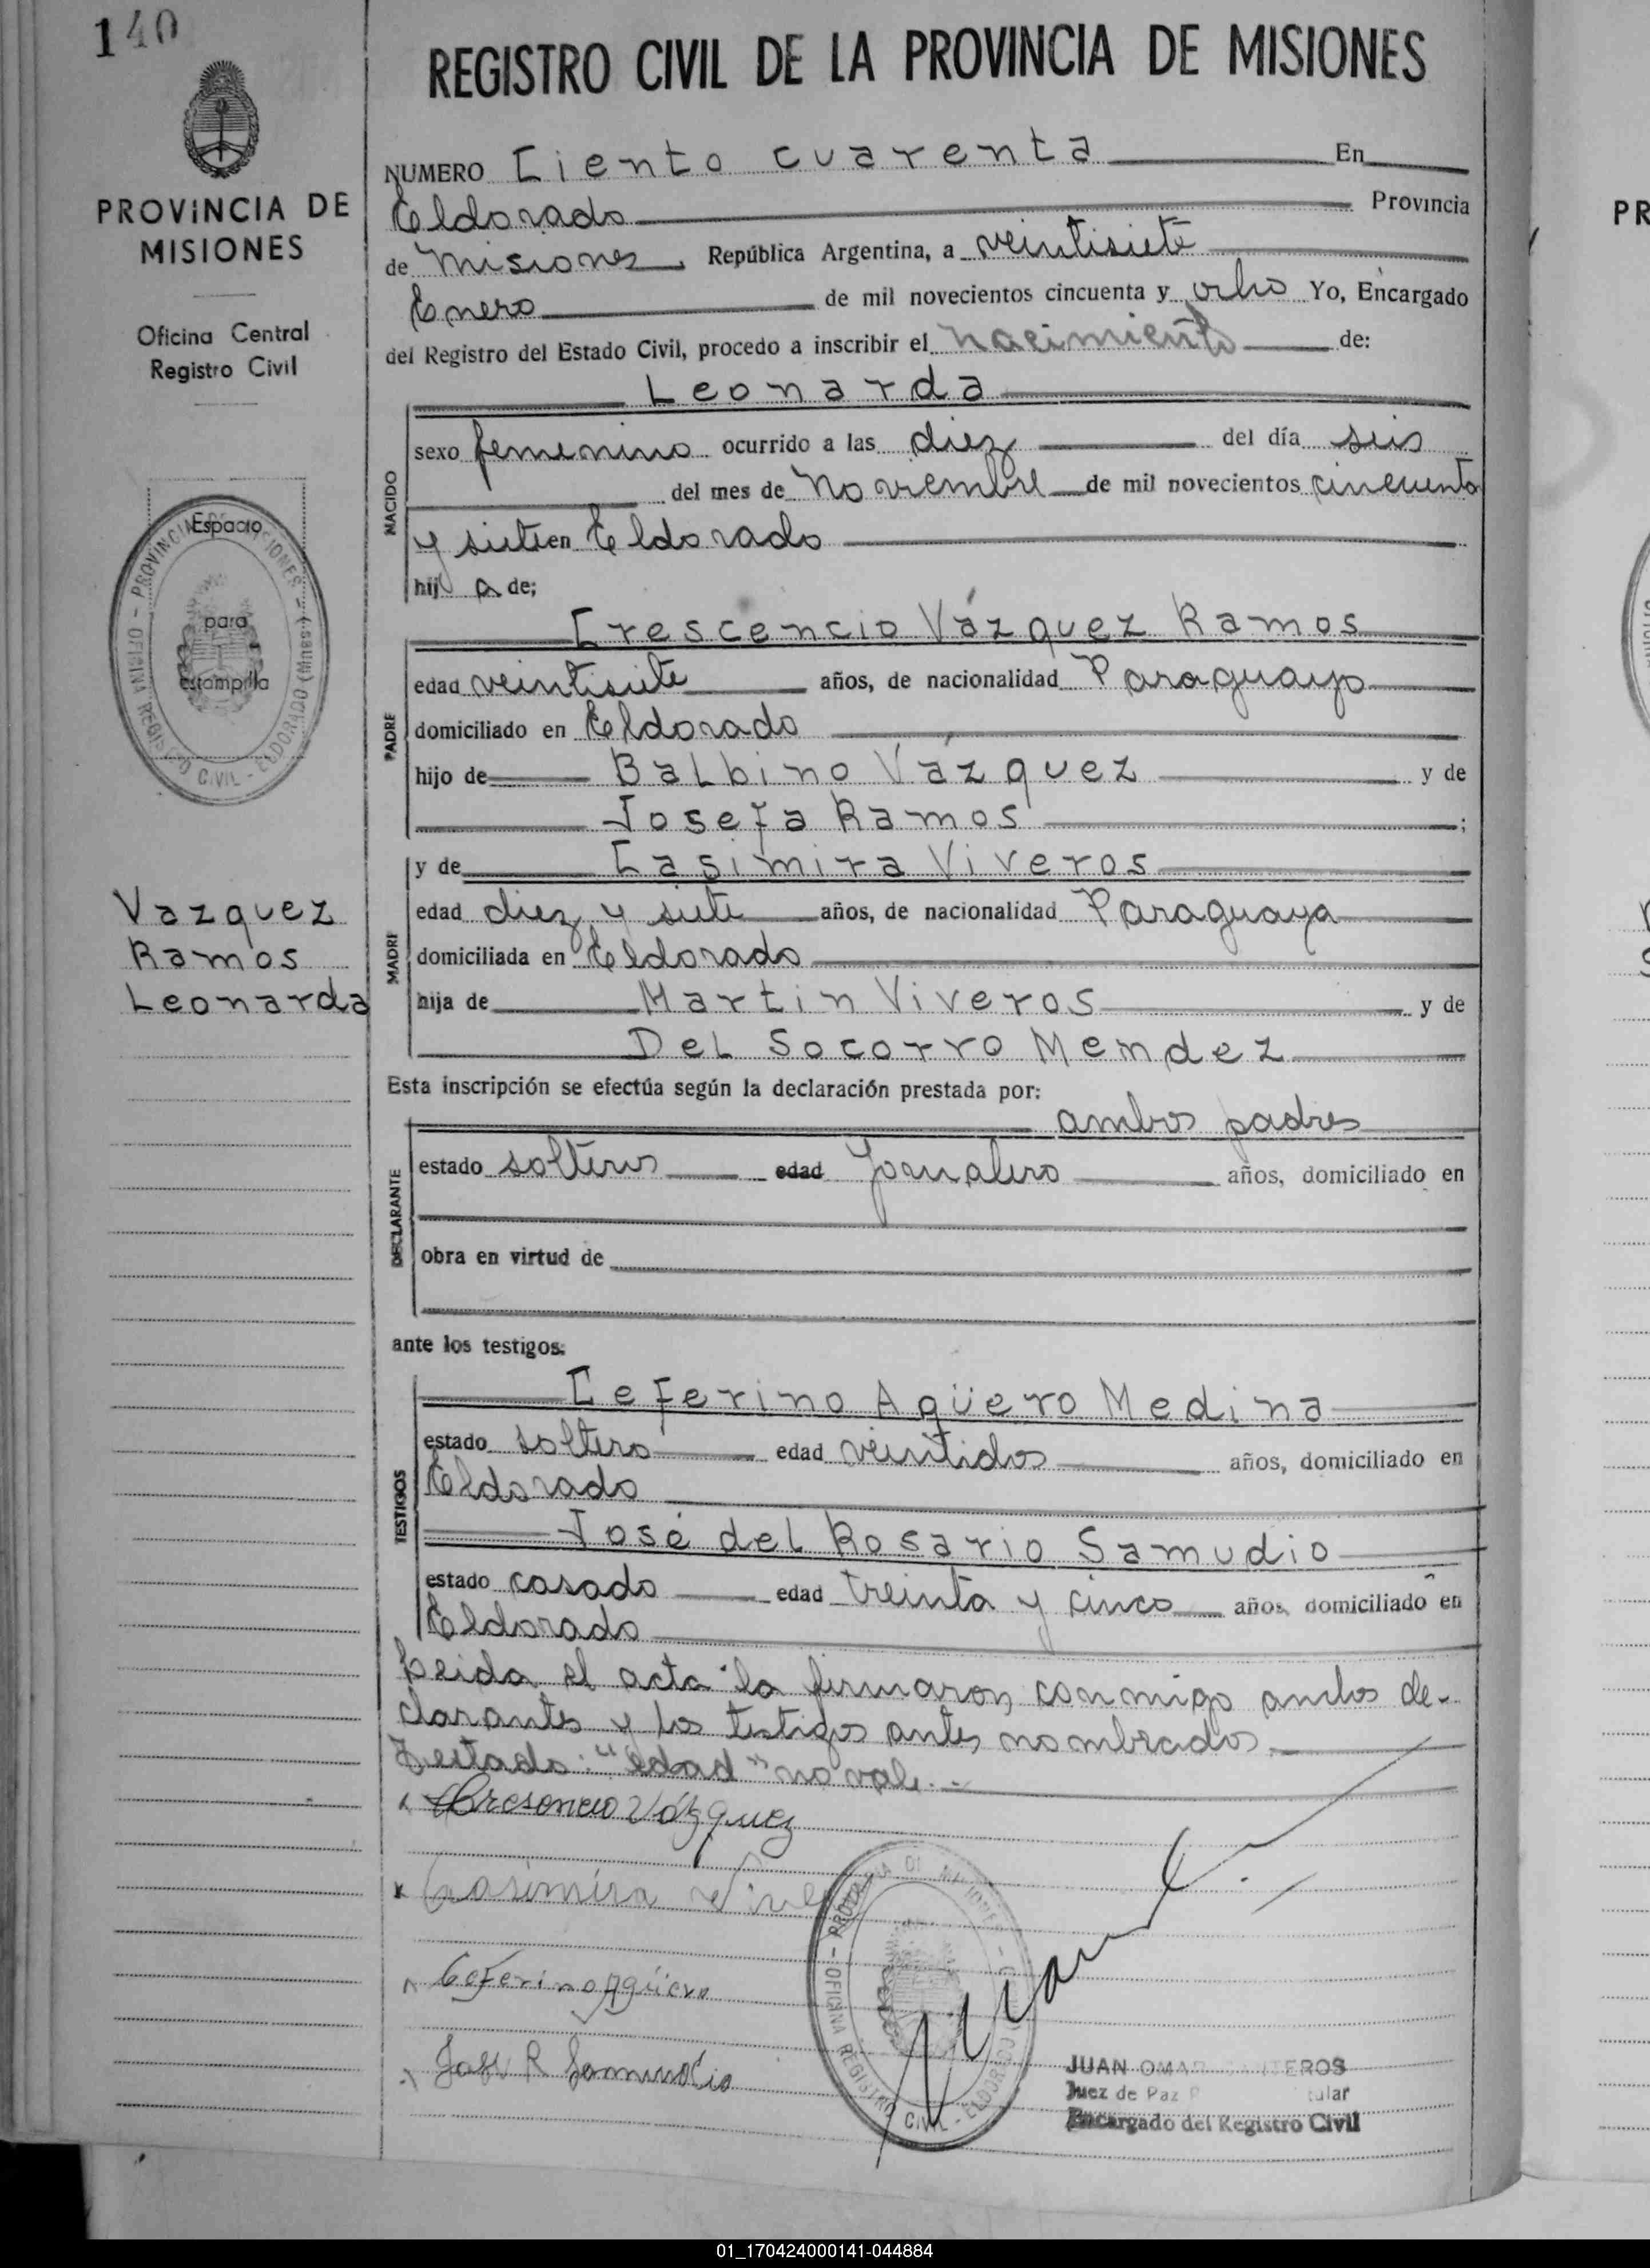 140
REGISTRO CIVIL DE LA PROVINCIA DE MISIONES
PROVINCIA DE
MISIONES
Oficina Central
Registro Civil
Espacio
para
estampilla
Vazquez
Ramos
Leonarda
NUMERO Ciento cuarenta En
Eldorado Provincia
de Misiones, República Argentina, a veintisiete
Enero de mil novecientos cincuenta y ocho Yo, Encargado
del Registro del Estado Civil, procedo a inscribir el nacimiento de:
Leonarda
NACIDO
sexo femenino ocurrido a las diez del día seis
del mes de Noviembre de mil novecientos cincuenta
y siete en Eldorado
hij a de;
Crescencio Vázquez Ramos
PADRE
edad veintisiete años, de nacionalidad Paraguayo
domiciliado en Eldorado
hijo de Balbino Vázquez y de
Josefa Ramos ;
y de Casimira Viveros
MADRE
edad diez y siete años, de nacionalidad Paraguaya
domiciliada en Eldorado
hija de Martin Viveros y de
Del Socorro Mendez
Esta inscripción se efectúa según la declaración prestada por:
ambos padres
DECLARANTE
estado solteros edad Jornalero años, domiciliado en
obra en virtud de
ante los testigos:
Ceferino Agüero Medina
TESTIGOS
estado soltero edad veintidos años, domiciliado en
Eldorado
José del Rosario Samudio
estado casado edad treinta y cinco años, domiciliado en
Eldorado
Leida el acta la firmaron conmigo ambos de-
clarantes y los testigos antes nombrados.
Testado: "edad" no vale.-
Cresencio Vázquez
Casimira
Ceferino Agüero
José R Samudio
PROVINCIA DE MISIONES - OFICINA REGISTRO CIVIL - ELDORADO
JUAN OMAR
Juez de Paz
Encargado del Registro Civil
01_170424000141-044884